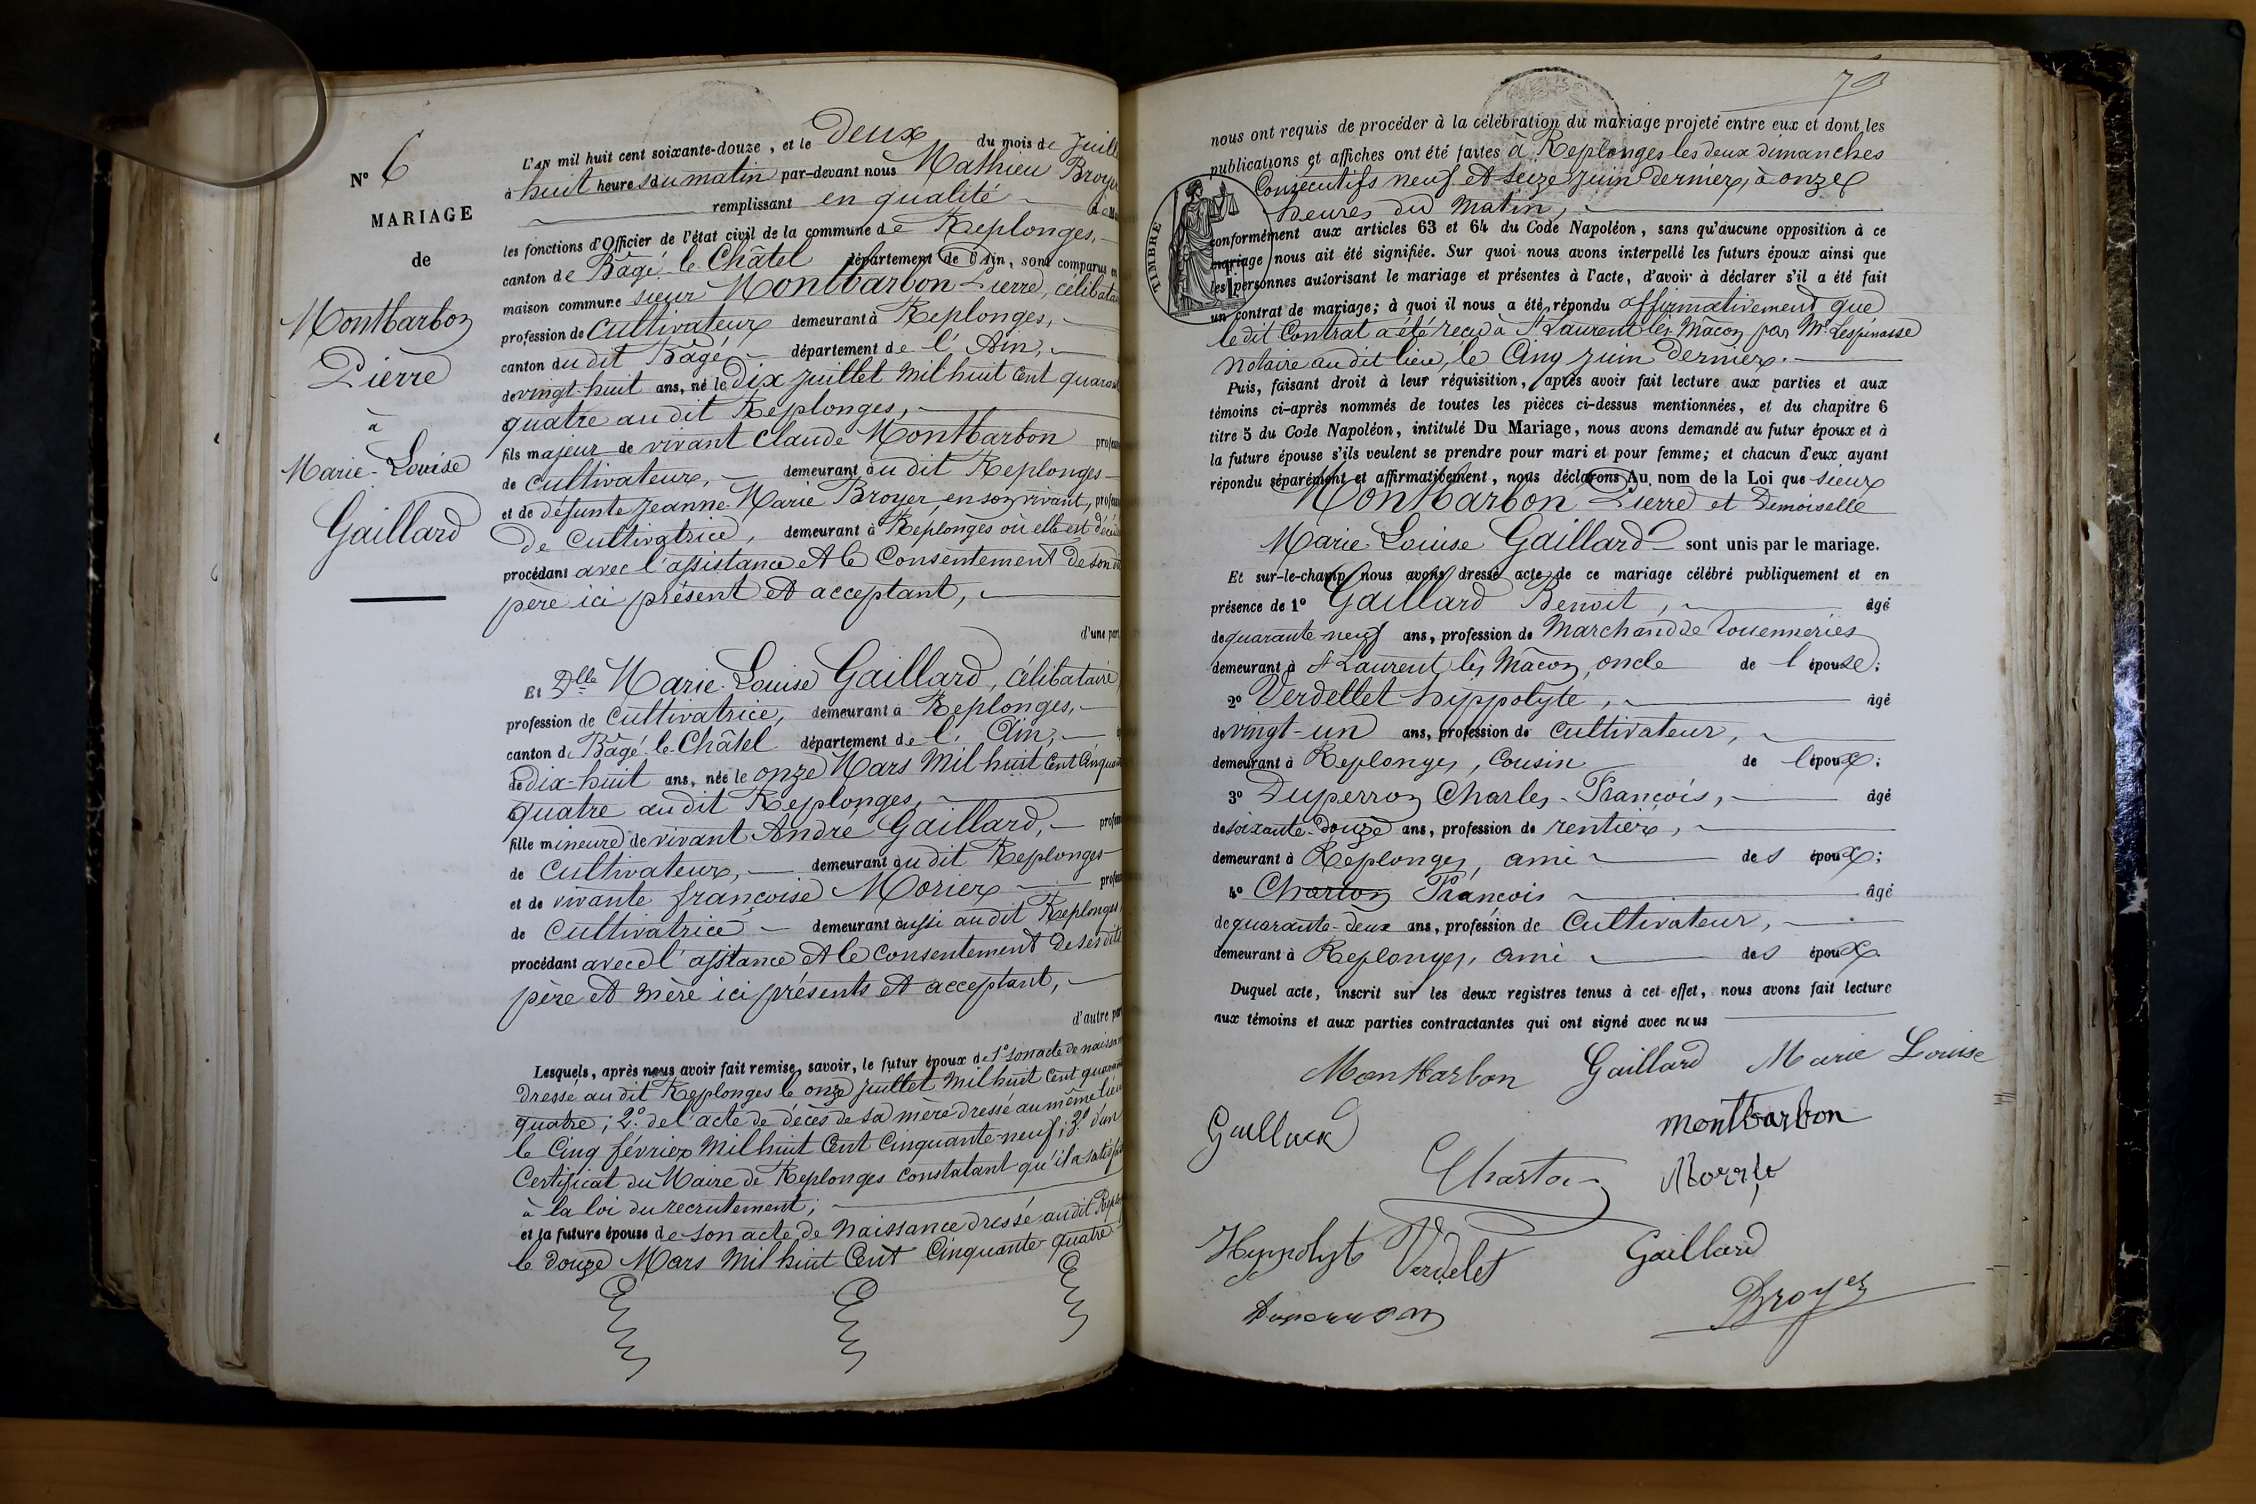 N° 6
MARIAGE
de
Montbarbon
Pierre
à
Marie-Louise
Gaillard
L'AN mil huit cent soixante-douze, et le Deux du mois de Juill
à huit heures du matin par-devant nous Mathieu Broye
remplissant en qualité
les fonctions d'Officier de l'état civil de la commune de Replonges,
canton de Bâgé-le-Châtel département de l'Ain, sont comparus en
maison commune sieur Montbarbon Pierre, célibatai
profession de Cultivateur demeurant à Replonges,
canton du dit Bâgé département de l'Ain,
de vingt-huit ans, né le Dix juillet mil huit cent quaran
quatre au dit Replonges,
fils majeur de vivant Claude Montbarbon profess
de Cultivateur, demeurant au dit Replonges
et de défunte Jeanne-Marie Broyer en son vivant, profess
de Cultivatrice, demeurant à Replonges où elle est décéd
procédant avec l'assistance et le Consentement de son dit
père ici présent et acceptant,
d'une part
Et Dlle Marie-Louise Gaillard, célibataire
profession de Cultivatrice, demeurant à Replonges,
canton de Bâgé-le-Châtel département de l'Ain,
de dix-huit ans, née le onze Mars mil huit cent cinquan
quatre au dit Replonges,
fille mineure de vivant André Gaillard, profess
de Cultivateur, demeurant au dit Replonges
et de vivante françoise Morier profess
de Cultivatrice demeurant aussi au dit Replonges,
procédant avec l'assistance et le consentement de ses dits
père et mère ici présents et acceptant,
d'autre part
Lesquels, après nous avoir fait remise, savoir, le futur époux de 1° son acte de naissan
dressé au dit Replonges le onze juillet mil huit cent quarante
quatre; 2° de l'acte de décès de sa mère dressé au même lieu
le Cinq février mil huit cent cinquante-neuf; 3° d'un
Certificat du Maire de Replonges constatant qu'il a satisfait
à la loi du recrutement;
et la future épouse de son acte de Naissance dressé au dit Replon
le douze Mars mil huit Cent Cinquante-quatre
nous ont requis de procéder à la célébration du mariage projeté entre eux et dont les
publications et affiches ont été faites à Replonges les deux dimanches
Consécutifs neuf et seize juin dernier, à onze
heures du matin,
TIMBRE
conformément aux articles 63 et 64 du Code Napoléon, sans qu'aucune opposition à ce
mariage nous ait été signifiée. Sur quoi nous avons interpellé les futurs époux ainsi que
les personnes autorisant le mariage et présentes à l'acte, d'avoir à déclarer s'il a été fait
un contrat de mariage; à quoi il nous a été répondu affirmativement que
le dit Contrat a été reçu à St Laurent-lès-Mâcon par Me Lespinasse
Notaire au dit lieu, le Cinq juin dernier.
Puis, faisant droit à leur réquisition, après avoir fait lecture aux parties et aux
témoins ci-après nommés de toutes les pièces ci-dessus mentionnées, et du chapitre 6
titre 5 du Code Napoléon, intitulé Du Mariage, nous avons demandé au futur époux et à
la future épouse s'ils veulent se prendre pour mari et pour femme; et chacun d'eux ayant
répondu séparément et affirmativement, nous déclarons Au nom de la Loi que sieur
Montbarbon Pierre et Demoiselle
Marie-Louise Gaillard sont unis par le mariage.
Et sur-le-champ nous avons dressé acte de ce mariage célébré publiquement et en
présence de 1° Gaillard Benoit, âgé
de quarante-neuf ans, profession de Marchand de rouenneries
demeurant à St Laurent lès Mâcon, oncle de l'épouse;
2° Verdellet hippolyte, âgé
de vingt-un ans, profession de cultivateur,
demeurant à Replonges, Cousin de l'époux;
3° Duperron Charles-François, âgé
de soixante-douze ans, profession de rentier,
demeurant à Replonges, ami des époux;
4° Charton François âgé
de quarante-deux ans, profession de Cultivateur,
demeurant à Replonges, ami des époux.
Duquel acte, inscrit sur les deux registres tenus à cet effet, nous avons fait lecture
aux témoins et aux parties contractantes qui ont signé avec nous
Montbarbon Gaillard Marie Louise
Gaillard
montbarbon
Charton
Hyppolyte Verdelet
Gaillard
Duperron
Broyer